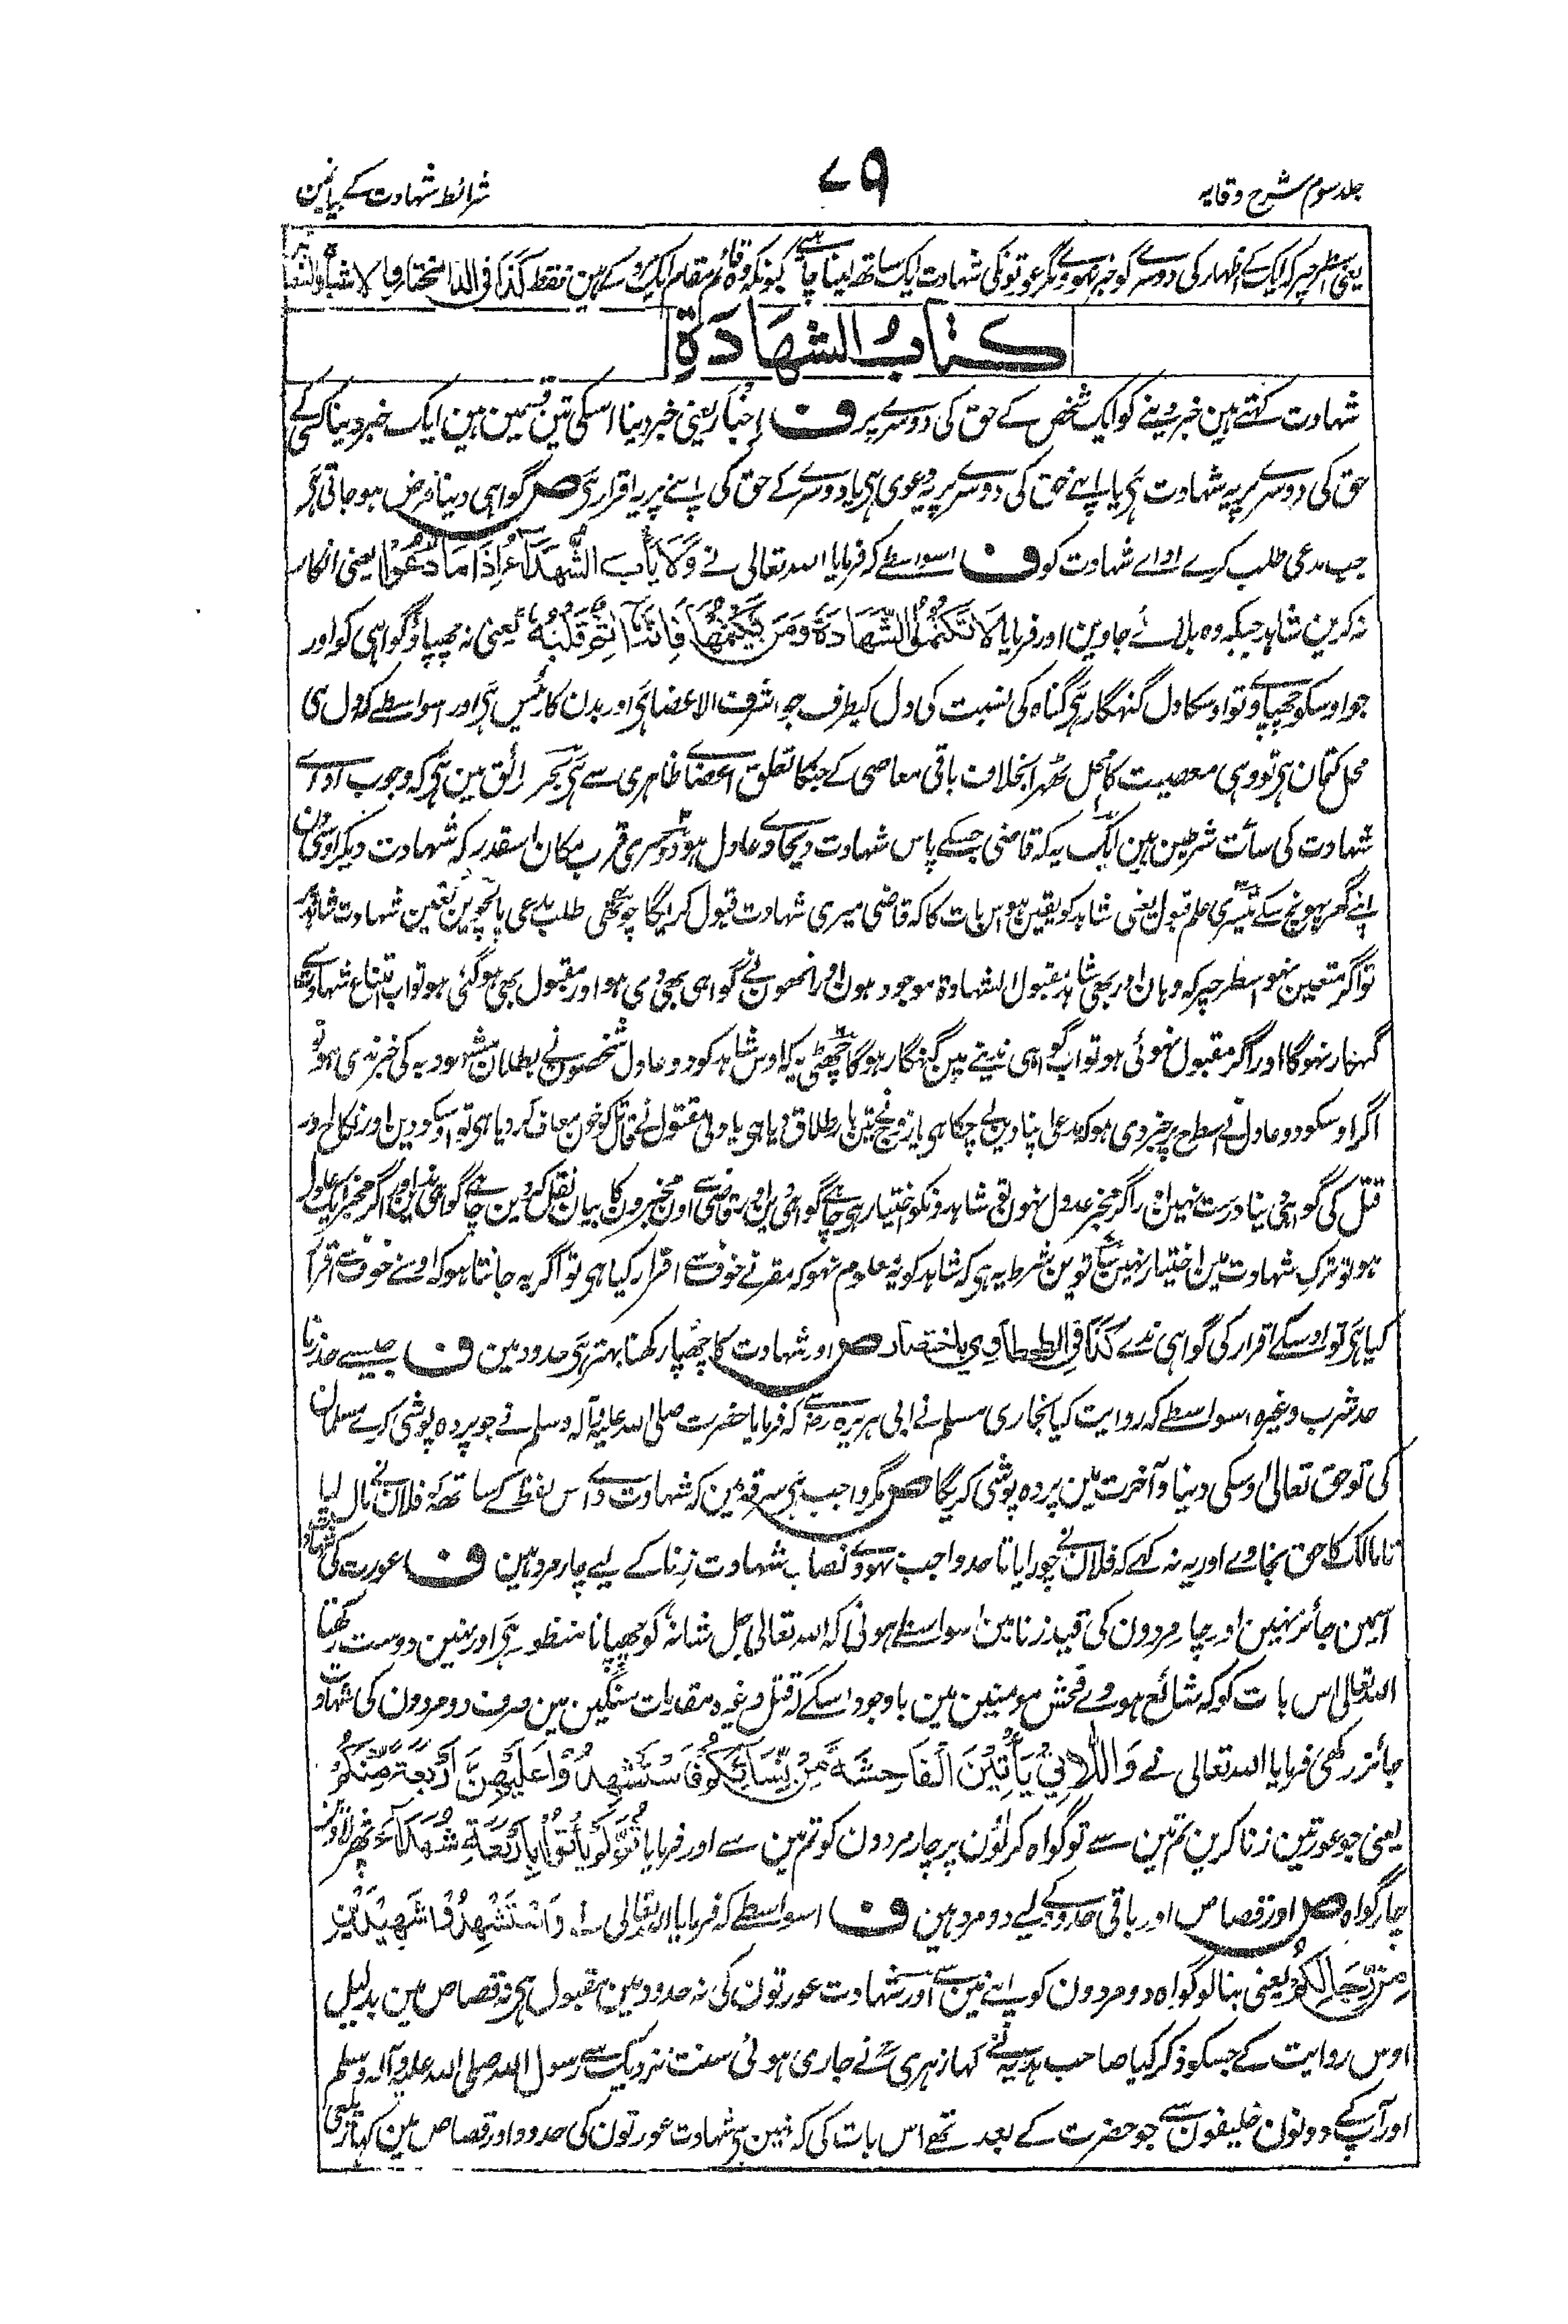 جلد سوم شرح وقایہ
۷۹
شرائط شہادت کے بیانمین
یعنی اسطرحپر کہ ایک کے اظہار کی دوسرے کو خبر نہووے مگر عورتونکی شہادت ایک ساتھ لینا چاہیے کیونکہ وہ قائم مقام ایک مرد کے ہین فقط کذا فی الدر المختار
کتاب الشهادة
شہادت کہتے ہین خبر دینے کو ایک شخص کے حق کی دوسرے پر ف اخبار یعنی خبر دینا اسکی تین قسمین ہین ایک خبر دینا کسی کے
حق کی دوسرے پر یہ شہادت ہی یا اپنے حق کی دوسرے پر یہ دعوی ہی یا دوسرے کے حق کی اپنے پر یہ اقرار ہی ص گواہی دینا فرض ہو جاتی ہی
جب مدعی طلب کرے اداے شہادت کو ف اسواسطے کہ فرمایا اللہ تعالی نے وَلَا يَأْبَ الشُّهَدَآءُ إِذَا مَا دُعُوْا یعنی انکار
نہ کرین شاہد جبکہ وہ بلائے جاوین اور فرمایا لَا تَكْتُمُوا الشَّهَادَةَ وَمَنْ يَّكْتُمْهَا فَاِنَّهٗ اٰثِمٌ قَلْبُهٗ یعنی نہ چھپاؤ گواہی کو اور
جو اوسکو چھپاوے تو اوسکا دل گنہگار ہی گناہ کی نسبت کی دل کیطرف جو اشرف الاعضا ہی اور بدن کا رئیس ہی اور اسواسطے کہ دل ہی
محل کتمان ہی تو وہی معصیت کا محل ٹھہرا بخلاف باقی معاصی کے جنکا تعلق اعضاے ظاہری سے ہی بحر رائق مین ہی کہ وجوب اداے
شہادت کی سات شرطین ہین ایک یہ کہ قاضی جسکے پاس شہادت دیجاوے عادل ہو دوسری قرب مکان اسقدر کہ شہادت دیکر اوسی دن
اپنے گھر پہونچ سکے تیسری علم قبول یعنی شاہد کو یقین ہو اس بات کا کہ قاضی میری شہادت قبول کریگا چوتھی طلب مدعی پانچوین تعین شہادت شاہد پر
تو اگر متعین نہو اسطرحپر کہ وہان اور بھی شاہد مقبول الشہادۃ موجود ہون اور انھون نے گواہی بھی دی ہو اور مقبول بھی ہو گئی ہو تو اب امتناع شہادت سے
گنہگار نہوگا اور اگر مقبول نہوئی ہو تو اب گواہی ندینے مین گنہگار ہوگا چھٹی یہ کہ اوس شاہد کو دو عادل شخصون نے بطلان مشہود بہ کی خبر ندی ہو تو
اگر اوسکو دو عادل نے اسطرح پر خبر دی ہو کہ مدعی اپنا دین لے چکا ہی یا زوج نے تین بار طلاق دیا ہی یا ولی مقتول نے قاتل کو خون معاف کر دیا ہی تو اوسکو دین اور نکاح اور
قتل کی گواہی دینا درست نہین اور اگر مخبر عدول نہون تو شاہدونکو اختیار ہی چاہے گواہی دین اور قاضی سے اون مخبرون کا بیان نقل کر دین چاہے گواہی ندین اور اگر مخبر ایک عادل
ہو تو ترک شہادت مین اختیار نہین ساتوین شرط یہ ہی کہ شاہد کو یہ معلوم نہو کہ مقر نے خوف سے اقرار کیا ہی تو اگر یہ جانتا ہو کہ اوسنے خوف سے اقرار
کیا ہی تو اوسکے اقرار کی گواہی ندے کذا فی الطحطاوی باختصار ص اور شہادت کا چھپا رکھنا بہتر ہی حدود مین ف جیسے حد زنا
حد شرب وغیرہ اسواسطے کہ روایت کیا بخاری مسلم نے ابی ہریرہ رض سے کہ فرمایا حضرت صلی اللہ علیہ وآلہ وسلم نے جو پردہ پوشی کرے مسلمان
کی تو حق تعالی اوسکی دنیا و آخرت مین پردہ پوشی کریگا ص مگر واجب ہی سرقہ مین کہ شہادت دے اس لفظ کے ساتھ کہ فلان نے مال لیا
تا مالک کا حق نجاوے اور یہ نہ کہے کہ فلان نے چورایا تا حد واجب نہووے نصاب شہادت زنا کے لیے چار مرد ہین ف عورت کی شہادت
اسمین جائز نہین اور چار مردون کی قید زنا مین اسواسطے ہوئی کہ اللہ تعالی جل شانہ کو چھپانا منظور ہی اور نہین دوست رکھتا
اللہ تعالی اس بات کو کہ شائع ہووے فحش مومنین مین باوجود اسکے کہ قتل وغیرہ مقدمات سنگین مین صرف دو مردون کی شہادت
جائز رکھی فرمایا اللہ تعالی نے وَاللَّاتِيْ يَأْتِيْنَ الْفَاحِشَةَ مِنْ نِّسَائِكُمْ فَاسْتَشْهِدُوْا عَلَيْهِنَّ اَرْبَعَةً مِّنْكُمْ
یعنی جو عورتین زنا کرین تم مین سے تو گواہ کر لو اون پر چار مردون کو تم مین سے اور فرمایا ثُمَّ لَمْ يَأْتُوْا بِاَرْبَعَةِ شُهَدَآءَ پھر نہ لاوین
چار گواہ ص اور قصاص اور باقی حدود کے لیے دو مرد ہین ف اسواسطے کہ فرمایا اللہ تعالی نے وَاسْتَشْهِدُوْا شَهِيْدَيْنِ
مِنْ رِّجَالِكُمْ یعنی بنا لو گواہ دو مردون کو اپنے مین سے اور شہادت عورتون کی نہ حدود مین مقبول ہی نہ قصاص مین بدلیل
اوس روایت کے جسکو ذکر کیا صاحب ہدایہ نے کہا زہری نے جاری ہوئی سنت نزدیک سے رسول اللہ صلی اللہ علیہ وآلہ وسلم
اور آپکے دونون خلیفون سے جو حضرت کے بعد تھے اس بات کی کہ نہین ہی شہادت عورتون کی حدود اور قصاص مین کہا زیلعی